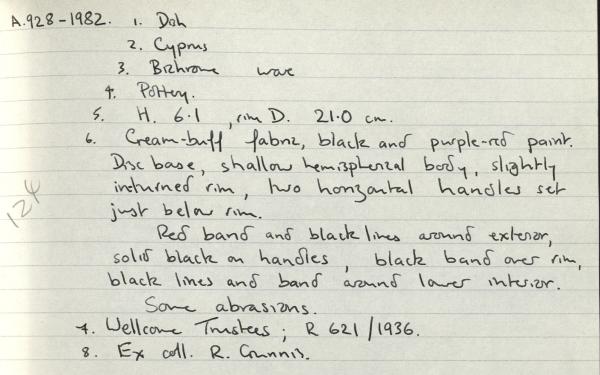 A.928-1982. 1. Dish
2. Cyprus
3. Bichrome ware
4. Pottery.
5. H. 6.1, rim D. 21.0 cm.
6. Cream-buff fabric, black and purple-red paint.
Disc base, shallow hemispherical body, slightly
inturned rim, two horizontal handles set
just below rim.
Red band and black lines around exterior,
solid black on handles, black band over rim,
black lines and band around lower interior.
Some abrasions.
7. Wellcome Trustees; R 621/1936.
8. Ex coll. R. Gunnis.
124